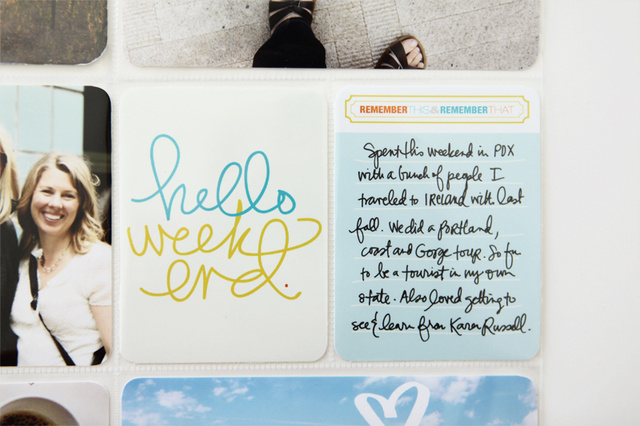 hello
week
end.
REMEMBER THIS & REMEMBER THAT
Spent this weekend in PDX
with a bunch of people I
traveled to IRELAND with last
fall. We did a Portland,
coast and Gorge tour. So fun
to be a tourist in my own
state. Also loved getting to
see & learn from Karen Russell.